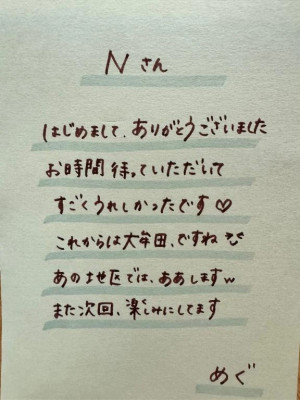 Nさん
はじめまして、ありがとうございました
お時間待っていただいて
すごくうれしかったです♡
これからは大牟田、ですね
あの地区では、ああしますw
また次回、楽しみにしてます
めぐ